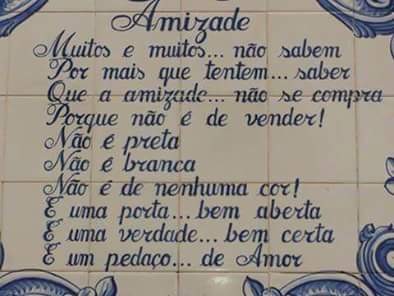 Amizade
Muitos e muitos... não sabem
Por mais que tentem... saber
Que a amizade... não se compra
Porque não é de vender!
Não é preta
Não é branca
Não é de nenhuma cor!
É uma porta... bem aberta
É uma verdade... bem certa
É um pedaço... de Amor